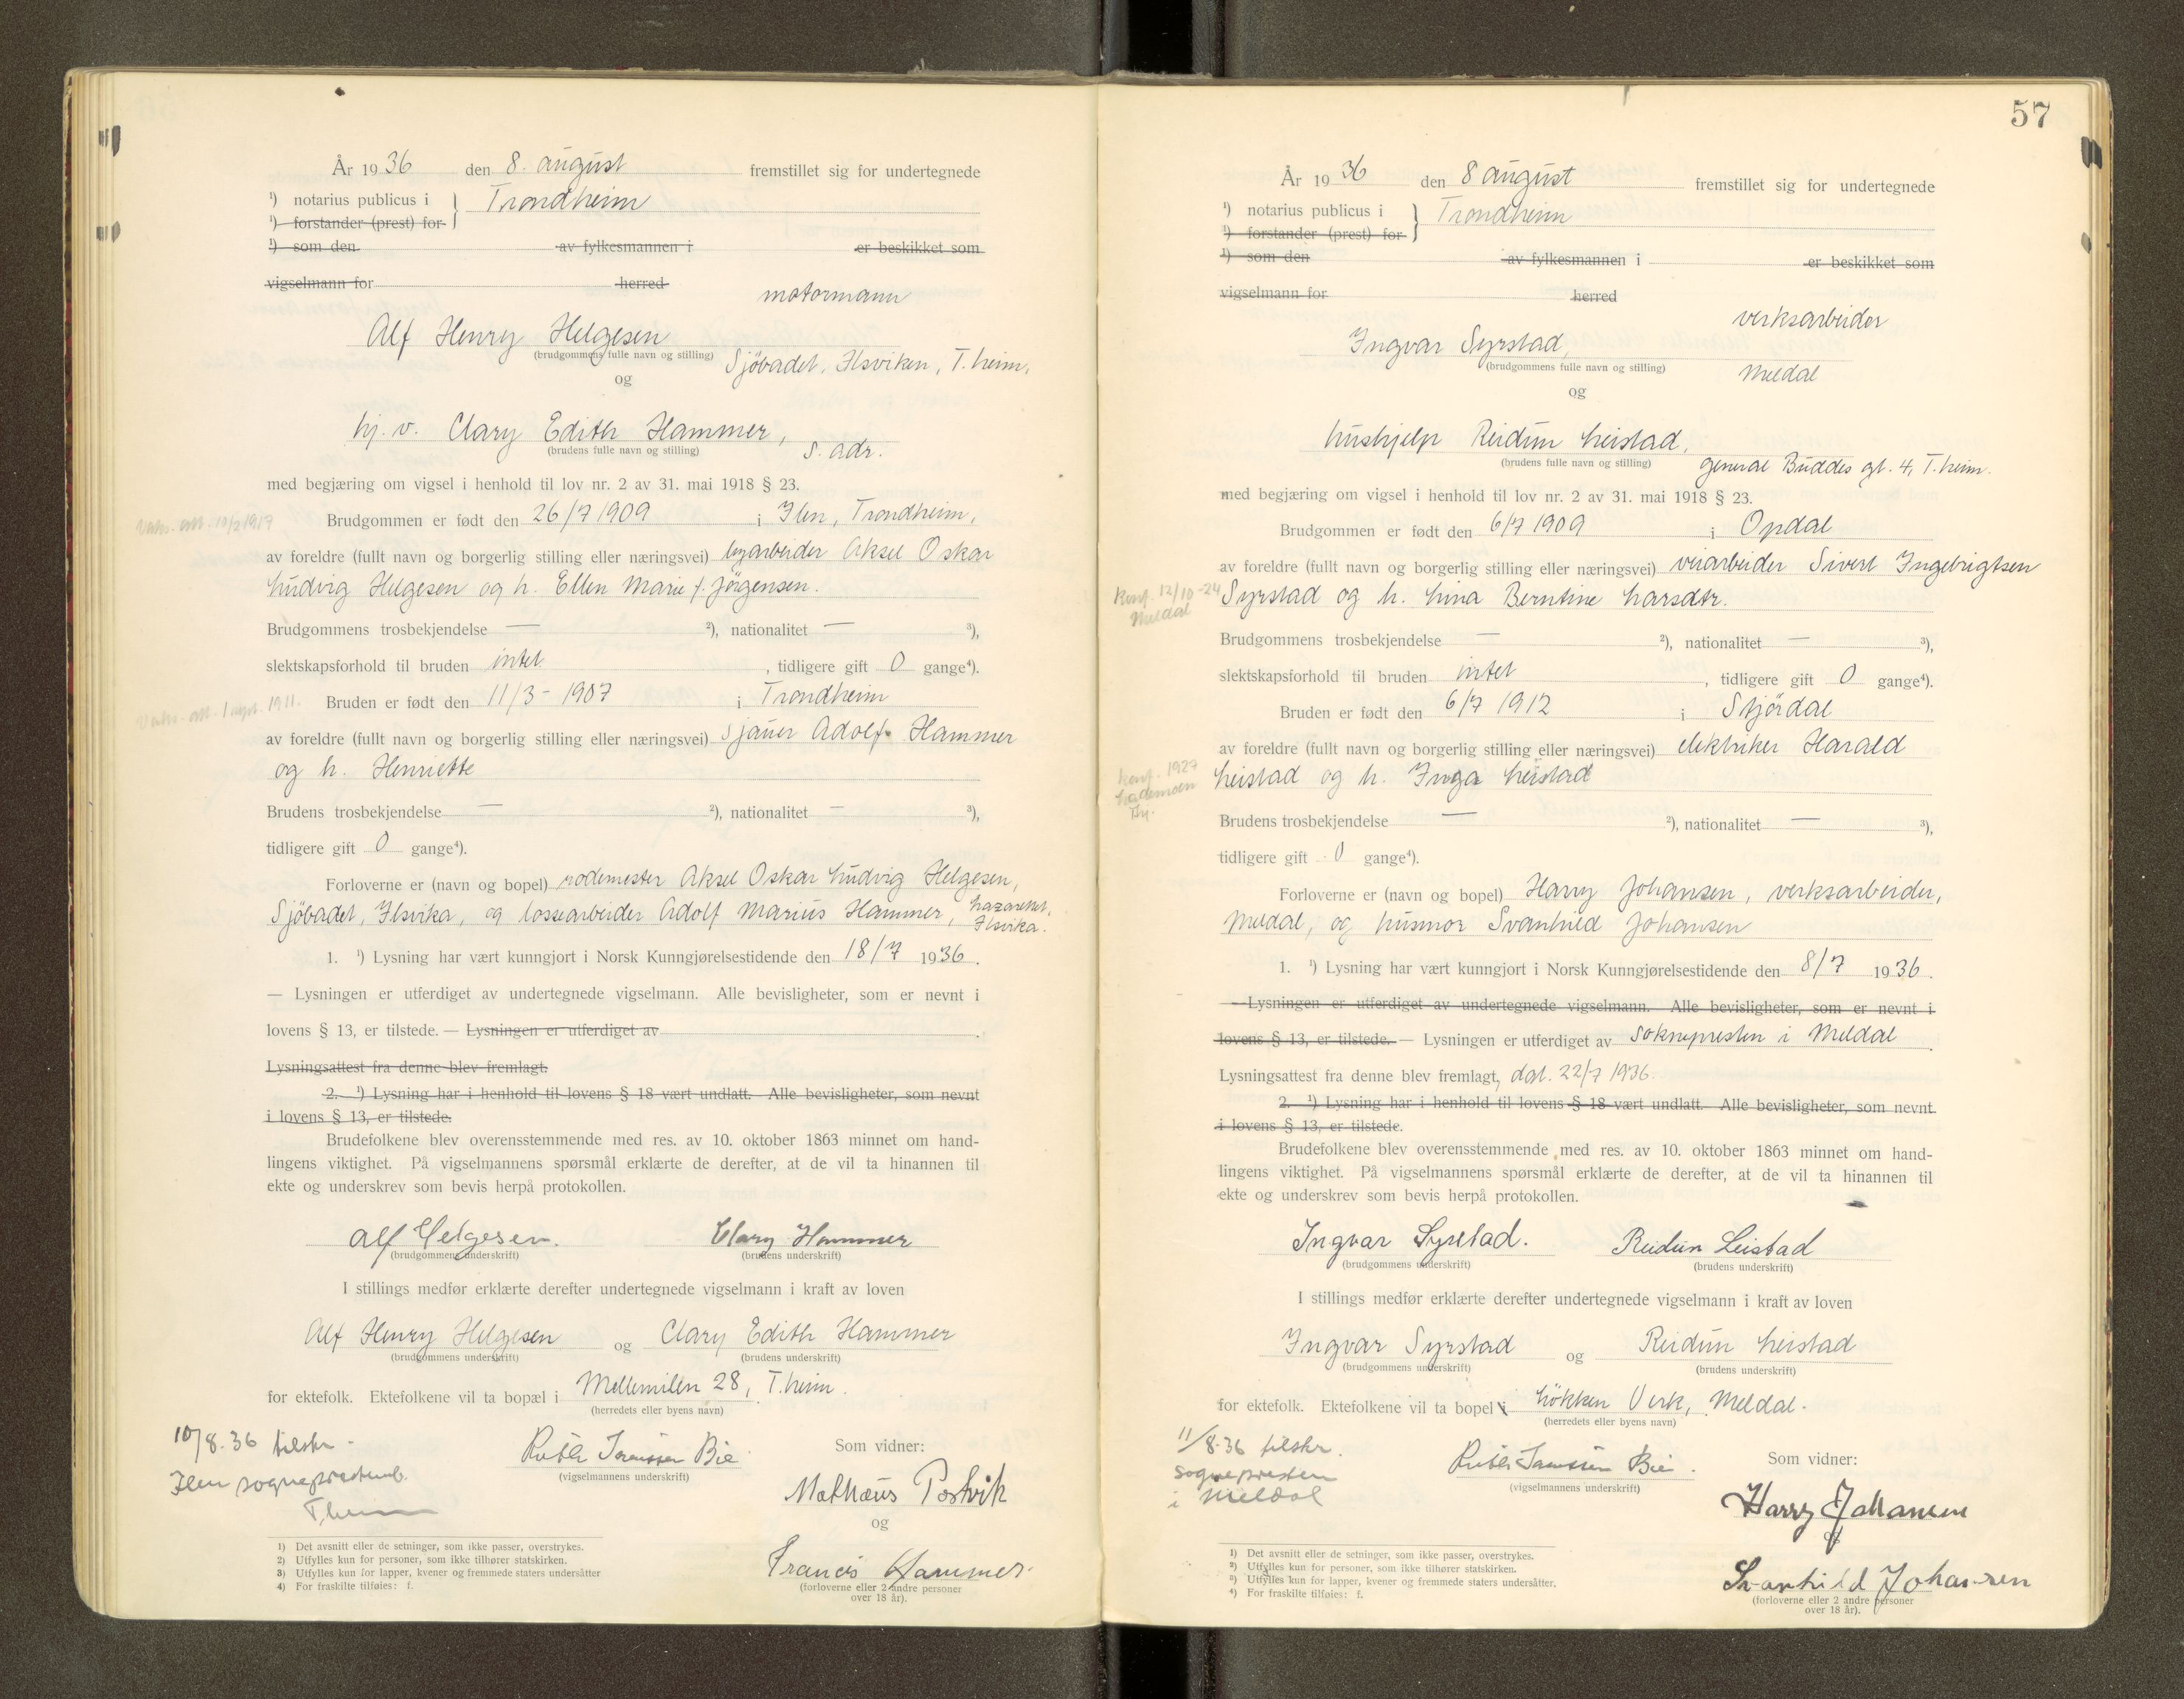 År 1936 den 8. august fremstillet sig for undertegnede
¹) notarius publicus i } Trondheim
¹) forstander (prest) for
¹) som den av fylkesmannen i er beskikket som
vigselmann for herred
motormann
Alf Henry Helgesen
(brudgommens fulle navn og stilling) Sjöbadet, Ilsviken, T.heim,
og
hj. v. Clary Edith Hammer,
(brudens fulle navn og stilling) s. adr.
med begjæring om vigsel i henhold til lov nr. 2 av 31. mai 1918 § 23.
Vaks. att. 10/2 1917
Brudgommen er født den 26/7 1909 i Ilen, Trondheim,
av foreldre (fullt navn og borgerlig stilling eller næringsvei) byarbeider Aksel Oskar
Ludvig Helgesen og h. Ellen Marie f. Jörgensen.
Brudgommens trosbekjendelse — ²), nationalitet — ³),
slektskapsforhold til bruden intet, tidligere gift 0 gange⁴).
Vaks. att. 1 sept. 1911.
Bruden er født den 11/3 - 1907 i Trondheim
av foreldre (fullt navn og borgerlig stilling eller næringsvei) sjauer Adolf Hammer
og h. Henriette
Brudens trosbekjendelse — ²), nationalitet — ³),
tidligere gift 0 gange⁴).
Forloverne er (navn og bopel) rodemester Aksel Oskar Ludvig Helgesen,
Sjöbadet, Ilsvika, og lossearbeider Adolf Marius Hammer, Lazarettet,
Ilsvika.
1. ¹) Lysning har vært kunngjort i Norsk Kunngjørelsestidende den 18/7 1936.
— Lysningen er utferdiget av undertegnede vigselmann. Alle bevisligheter, som er nevnt i
lovens § 13, er tilstede. — Lysningen er utferdiget av
Lysningsattest fra denne blev fremlagt.
2. ¹) Lysning har i henhold til lovens § 18 vært undlatt. Alle bevisligheter, som nevnt
i lovens § 13, er tilstede.
Brudefolkene blev overensstemmende med res. av 10. oktober 1863 minnet om hand-
lingens viktighet. På vigselmannens spørsmål erklærte de derefter, at de vil ta hinannen til
ekte og underskrev som bevis herpå protokollen.
Alf Helgesen. Clary Hammer
(brudgommens underskrift) (brudens underskrift)
I stillings medfør erklærte derefter undertegnede vigselmann i kraft av loven
Alf Henry Helgesen og Clary Edith Hammer
(brudgommens underskrift) (brudens underskrift)
for ektefolk. Ektefolkene vil ta bopæl i Mellemilen 28, T.heim.
(herredets eller byens navn)
10/8.36 tilskr.
Ilen sogneprestemb.
T.heim
Ruth Bie
(vigselmannens underskrift)
Som vidner:
Mathæus Postvik
og
Francis Hammer.
(forloverne eller 2 andre personer
over 18 år).
1) Det avsnitt eller de setninger, som ikke passer, overstrykes.
2) Utfylles kun for personer, som ikke tilhører statskirken.
3) Utfylles kun for lapper, kvener og fremmede staters undersåtter
4) For fraskilte tilføies: f.
57
År 1936 den 8 august fremstillet sig for undertegnede
¹) notarius publicus i } Trondheim
¹) forstander (prest) for
¹) som den av fylkesmannen i er beskikket som
vigselmann for herred
verksarbeider
Ingvar Syrstad,
(brudgommens fulle navn og stilling) Meldal
og
hushjelp Reidun Leistad,
(brudens fulle navn og stilling) general Buddes gt. 4, T.heim.
med begjæring om vigsel i henhold til lov nr. 2 av 31. mai 1918 § 23.
Brudgommen er født den 6/7 1909 i Opdal
av foreldre (fullt navn og borgerlig stilling eller næringsvei) veiarbeider Sivert Ingebrigtsen
Konf. 12/10-24
Meldal
Syrstad og h. Lina Berntine Larsdtr.
Brudgommens trosbekjendelse — ²), nationalitet — ³),
slektskapsforhold til bruden intet, tidligere gift 0 gange⁴).
Bruden er født den 6/7 1912 i Stjördal
av foreldre (fullt navn og borgerlig stilling eller næringsvei) elektriker Harald
Konf. 1927
Lademoen
Leistad og h. Inga Leistad
Brudens trosbekjendelse — ²), nationalitet — ³),
tidligere gift 0 gange⁴).
Forloverne er (navn og bopel) Harry Johansen, verksarbeider,
Meldal, og husmor Svanhild Johansen
1. ¹) Lysning har vært kunngjort i Norsk Kunngjørelsestidende den 8/7 1936.
—Lysningen er utferdiget av undertegnede vigselmann. Alle bevisligheter, som er nevnt i
lovens § 13, er tilstede. — Lysningen er utferdiget av soknepresten i Meldal.
Lysningsattest fra denne blev fremlagt, dat. 22/7 1936.
2. ¹) Lysning har i henhold til lovens § 18 vært undlatt. Alle bevisligheter, som nevnt
i lovens § 13, er tilstede.
Brudefolkene blev overensstemmende med res. av 10. oktober 1863 minnet om hand-
lingens viktighet. På vigselmannens spørsmål erklærte de derefter, at de vil ta hinannen til
ekte og underskrev som bevis herpå protokollen.
Ingvar Syrstad. Reidun Leistad
(brudgommens underskrift) (brudens underskrift)
I stillings medfør erklærte derefter undertegnede vigselmann i kraft av loven
Ingvar Syrstad og Reidun Leistad
(brudgommens underskrift) (brudens underskrift)
for ektefolk. Ektefolkene vil ta bopel i Lökken Verk, Meldal.
(herredets eller byens navn)
11/8-36 tilskr.
sognepresten
i Meldal
Ruth Bie.
(vigselmannens underskrift)
Som vidner:
Harry Johansen
og
Svanhild Johansen
(forloverne eller 2 andre personer
over 18 år).
¹) Det avsnitt eller de setninger, som ikke passer, overstrykes.
²) Utfylles kun for personer, som ikke tilhører statskirken.
³) Utfylles kun for lapper, kvener og fremmede staters undersåtter.
⁴) For fraskilte tilføies: f.